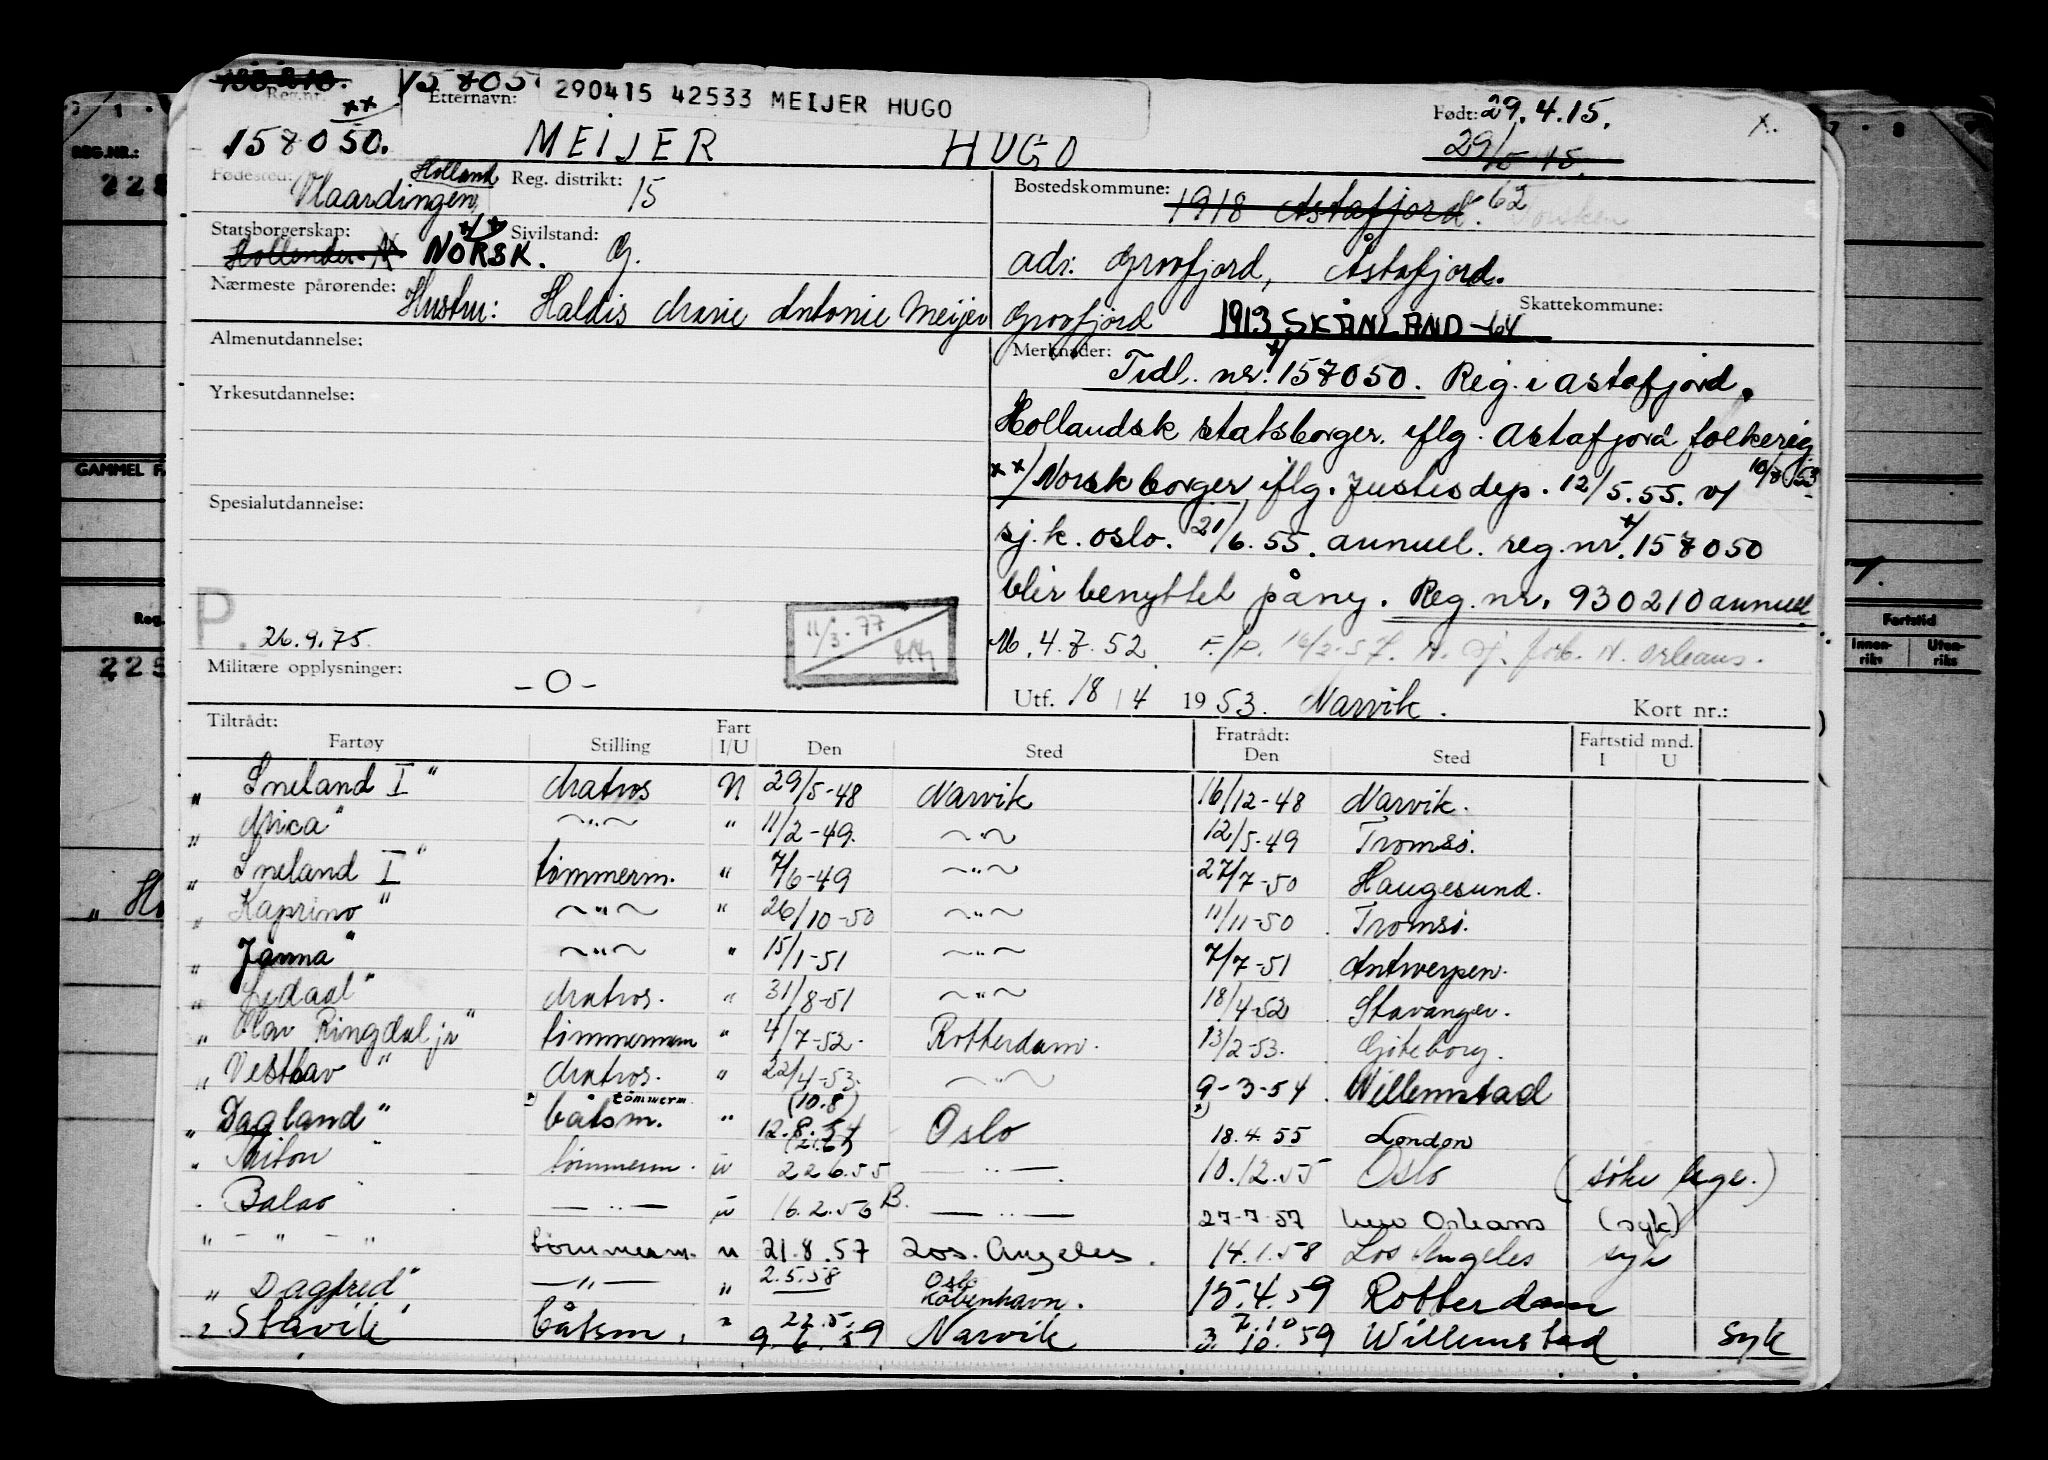 Reg.nr. 15 805 Etternavn: 290415 42533 MEIJER HUGO Født: 29.4.15. x.
157050. MEIJER HUGO 29/5-15.
Fødested: Vlaardingen, Holland Reg. distrikt: 15 Bostedskommune: 1918 Astafjord. 62
Statsborgerskap: Hollender NORSK. Sivilstand: G. adr. Grovfjord, Åstafjord.
Nærmeste pårørende: Hustru: Haldis Marie Antonie Meijer Grovfjord 1913 SKÅNLAND -64 Skattekommune:
Almenutdannelse: Merknader: Tidl. nr. 157050. Reg. i Astafjord.
Yrkesutdannelse: Hollandsk statsborger iflg. Astafjord folkereg. 10/8 53
xx) Norsk borger iflg. Justisdep. 12/5.55. v/
Spesialutdannelse: sj.k. oslo. 21/6.55. annuel. reg.nr. 157050
blir benyttet påny. Reg. nr. 930210 annuel.
P. 26.9.75. 11/3-77 M. 4.7.52. F./P. 16/2-57. N. Sj. forb. N. Orleans.
Militære opplysninger: -0- Utf. 18/4 1953. Narvik. Kort nr.:
Tiltrådt: Fratrådt: Fartstid mnd.
Fartøy Stilling Fart I/U Den Sted Den Sted I U
„ Sneland I" Matros N 29/5-48 Narvik 16/12-48 Narvik.
„ Mica" -"- " 11/2-49. -"- 12/5-49 Tromsø.
„ Sneland I" tømmerm. " 7/6-49 -"- 27/7-50 Haugesund.
„ Kaprino" -"- " 26/10-50 -"- 11/11-50 Tromsø.
„ Janna" -"- " 15/1-51 -"- 7/7-51 Antwerpen.
„ Ledaal" Matros. " 31/8-51 -"- 18/4-52 Stavanger.
„ Olav Ringdal jr" tømmermann " 4/7-52. Rotterdam. 13/2-53. Göteborg.
„ Vesthav" Matros. " 22/4-53. -"- 9-3-54 Willemstad
„ Dagland" båtsm. tømmerm. " (10.8) 12.8.54 Oslo 18.4.55 London
„ Triton" tømmerm. u (21.6) 22 6.55 -"- 10.12.55 Oslo (søke lege.)
„ Balao -"- u 16.2.56 B. -"- 27-7-57 New Orleans (syk)
„ - " - „ tømmerm. u 21.8.57 Los. Angeles. 14.1.58 Los Angeles syk
„ Dagfred" -"- " 2.5.58 Oslo København. 15.4.59 Rotterdam
„ Stavik" båtsm. " 22.5. 9.6.59 Narvik 7.10 3.10.59 Willemstad syk
REG.NR.:
228
GAMMEL F
Reg.
225
Fartstid
Innen-riks Uten-riks
„ Ho